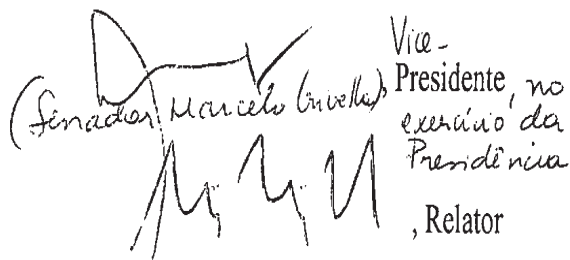 Vice-
(Senador Marcelo Crivella), Presidente, no
exercício da
Presidência
, Relator